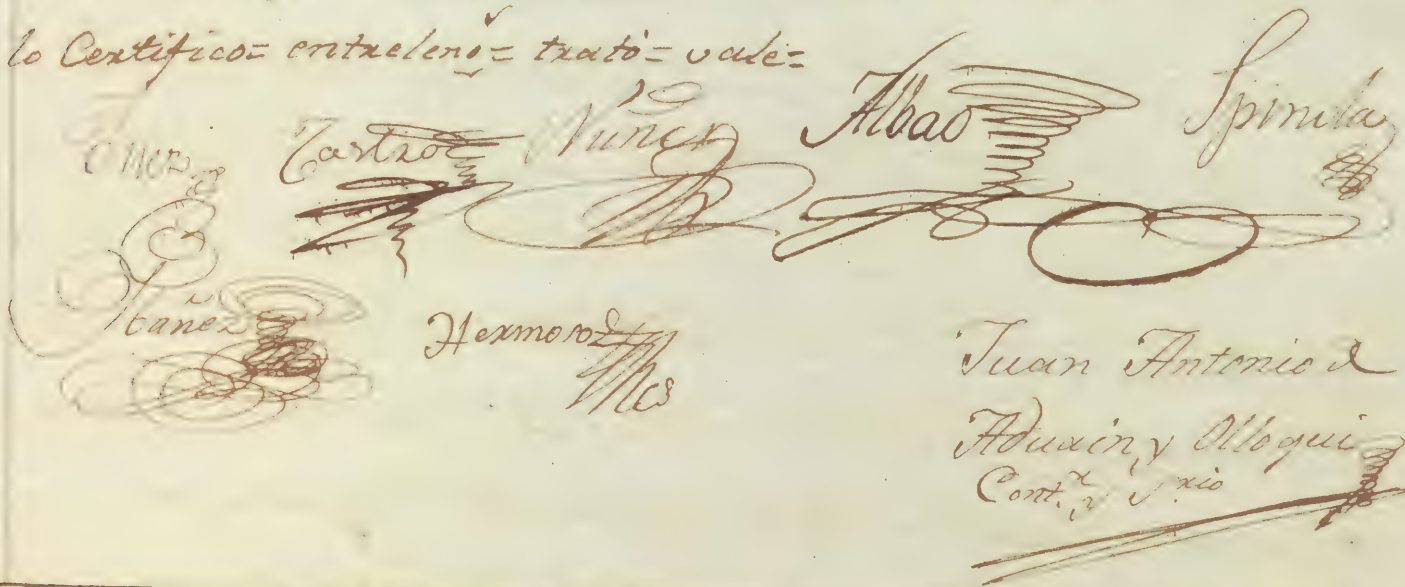 lo Certifico= entreleno= trató= vale=
Castro Nuñez Albao Spinola
Ibañez Hermoso
Juan Antonio de
Aduain, y Olloqui
Cont.r y S.rio